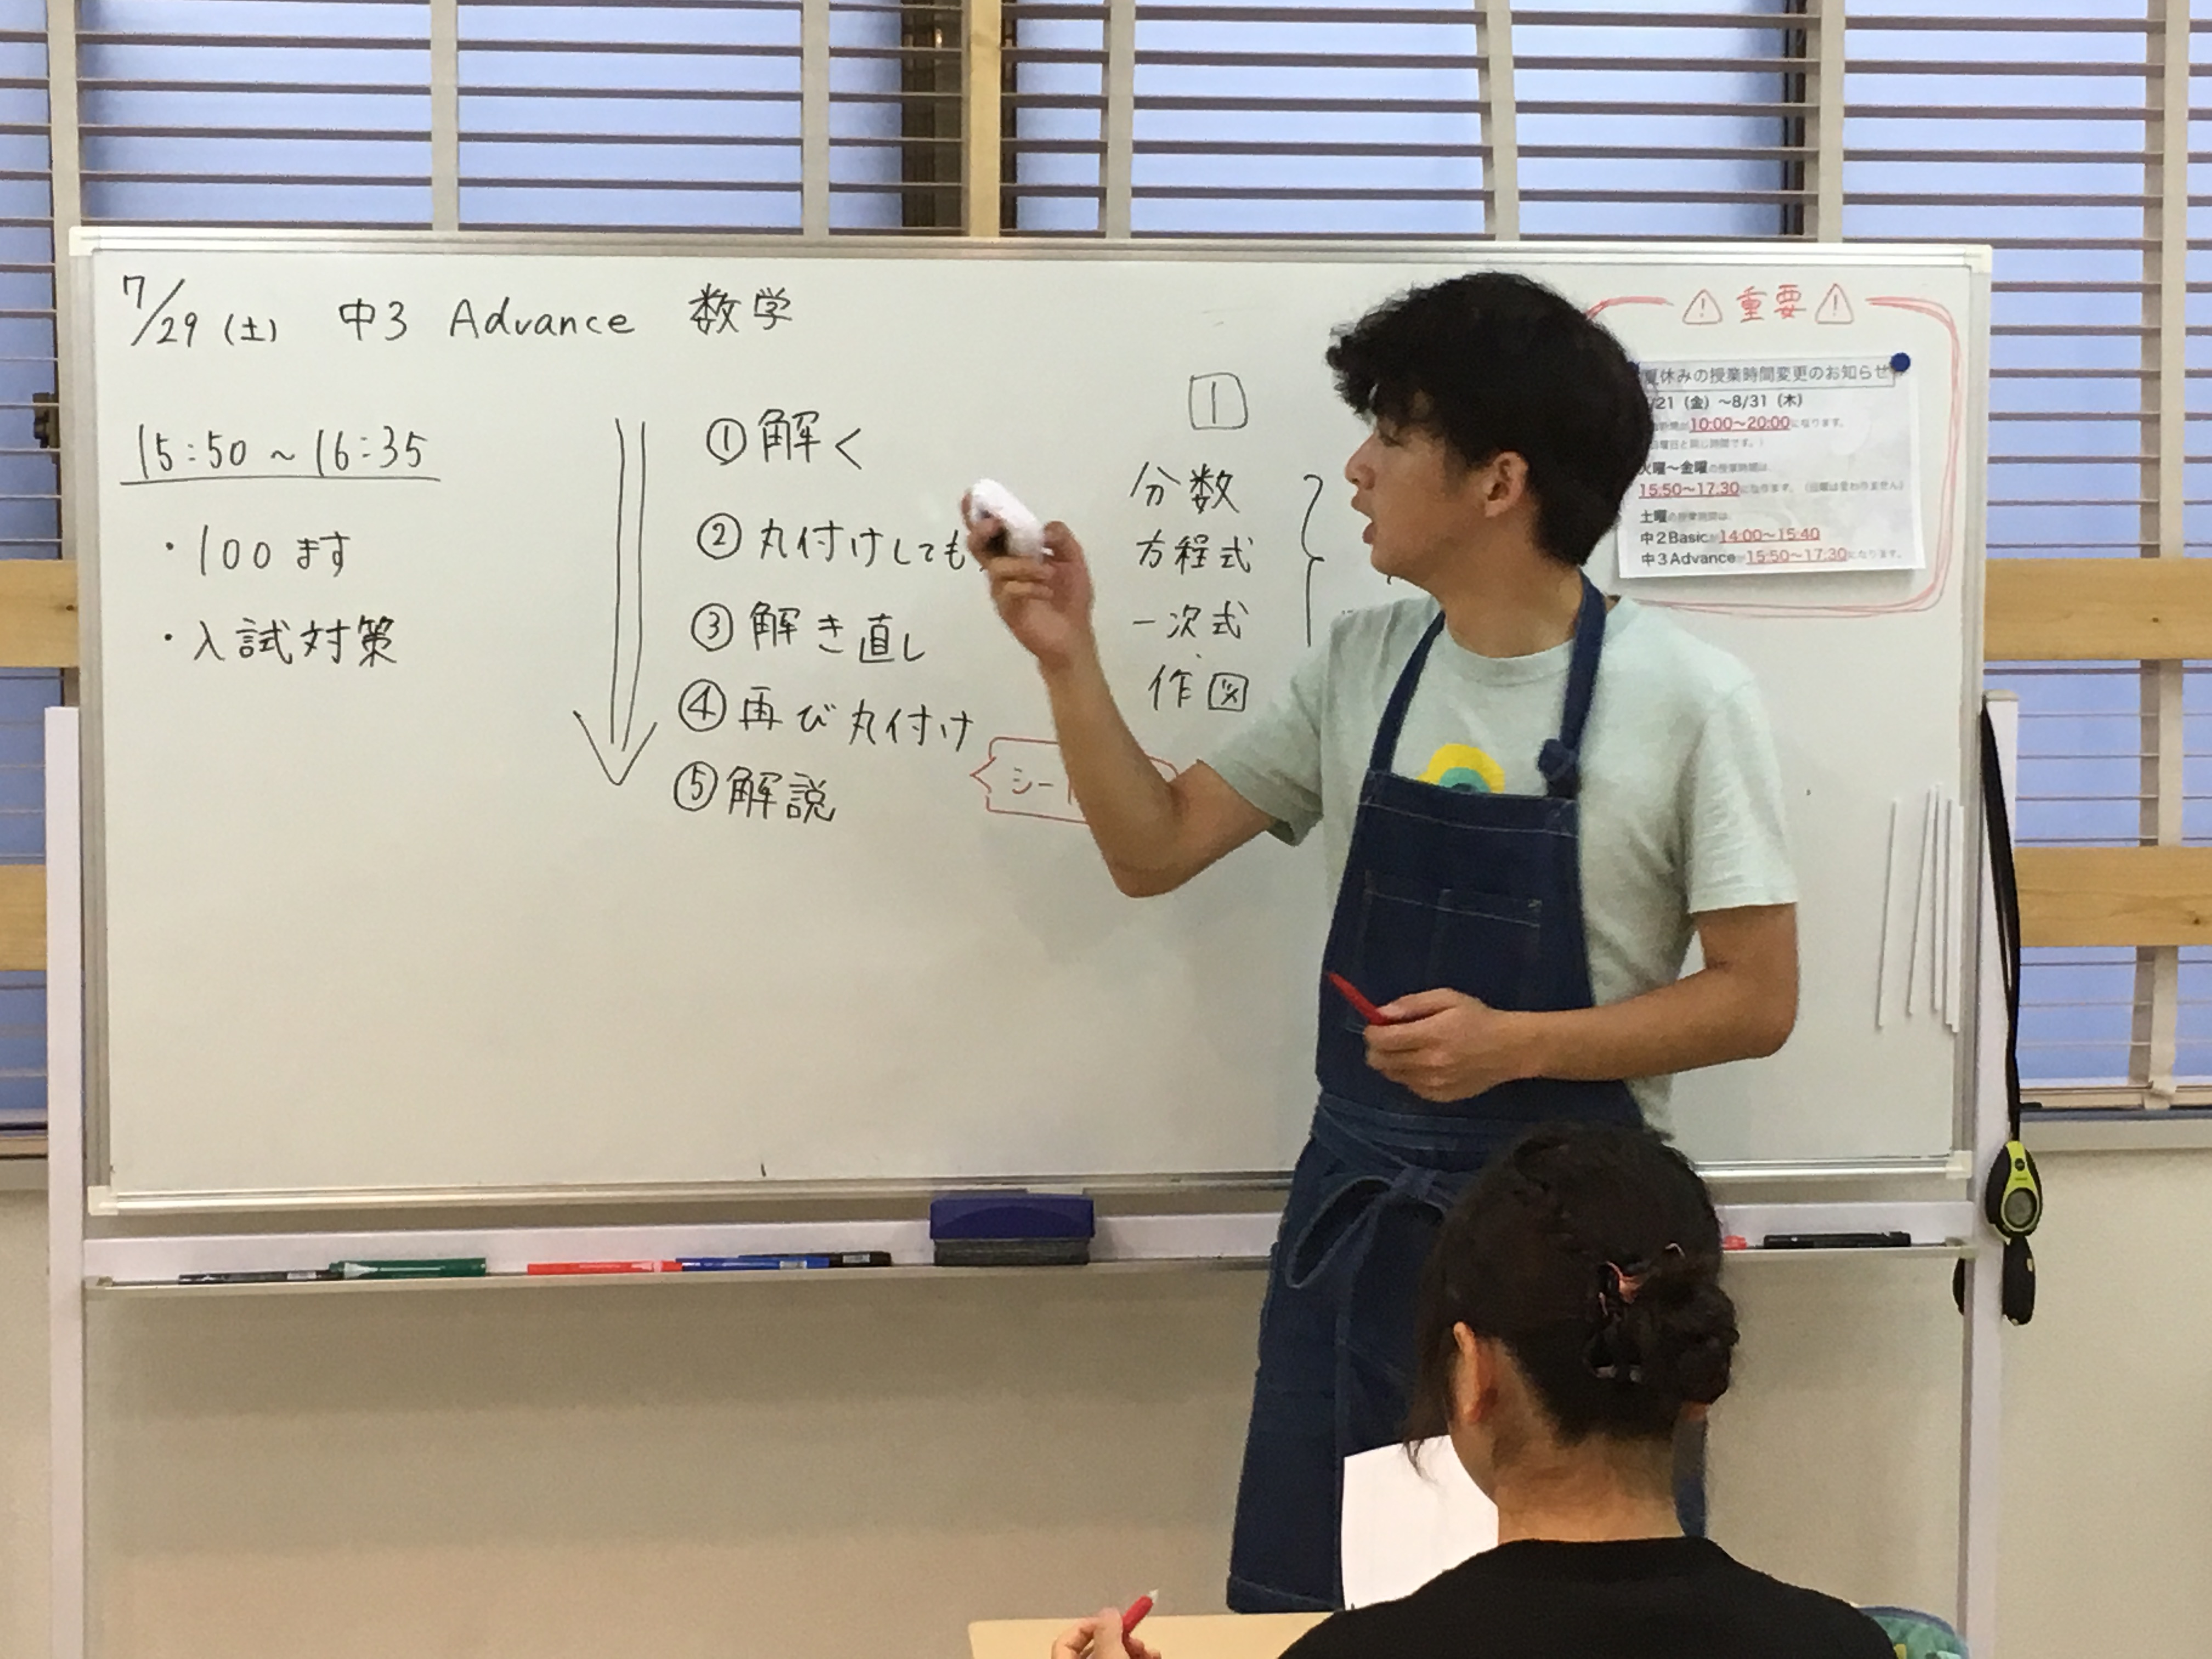 7/29(土) 中3 Advance 数学
15:50～16:35
・100ます
・入試対策
①解く
②丸付けしても
③解き直し
④再び丸付け
⑤解説
シー
1
分数
方程式
一次式
作図
⚠重要⚠
夏休みの授業時間変更のお知らせ
/21（金）～8/31（木）
10:00～20:00になります。
火曜～金曜の授業時間は
15:50～17:30になります。（日曜は変わりません）
土曜の授業時間は
中2Basic 14:00～15:40
中3Advance 15:50～17:30になります。